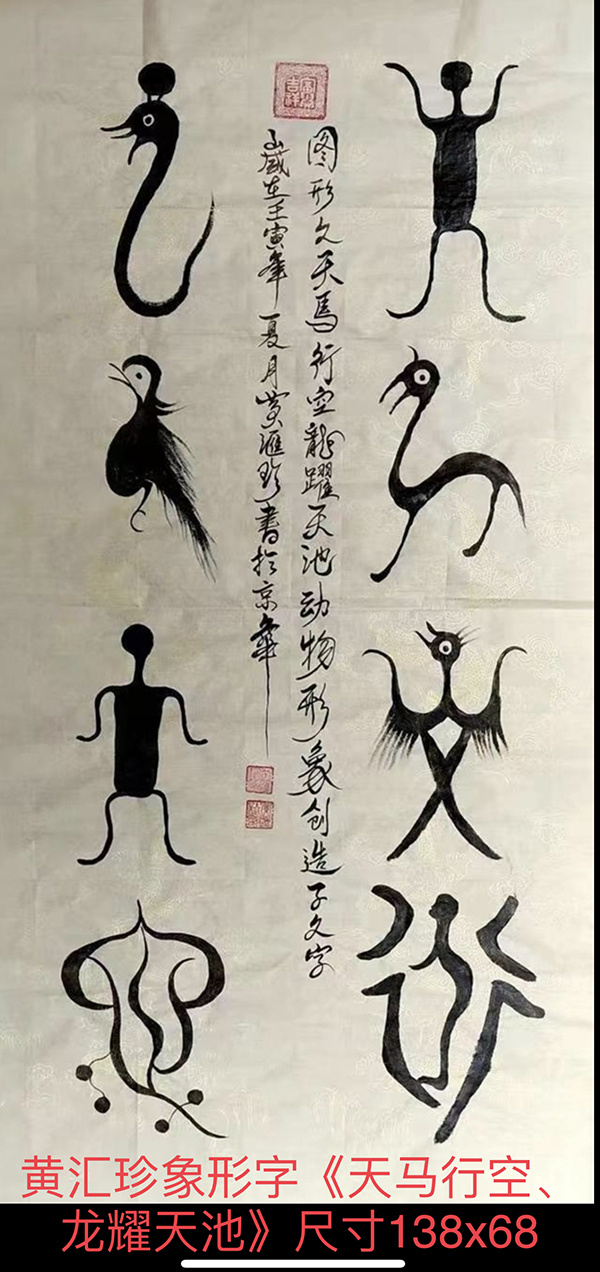 图形文天馬行空龍躍天池动物形象创造了文字
歲在壬寅年夏月黄滙珍書於京華
黄汇珍象形字《天马行空、
龙耀天池》尺寸138x68